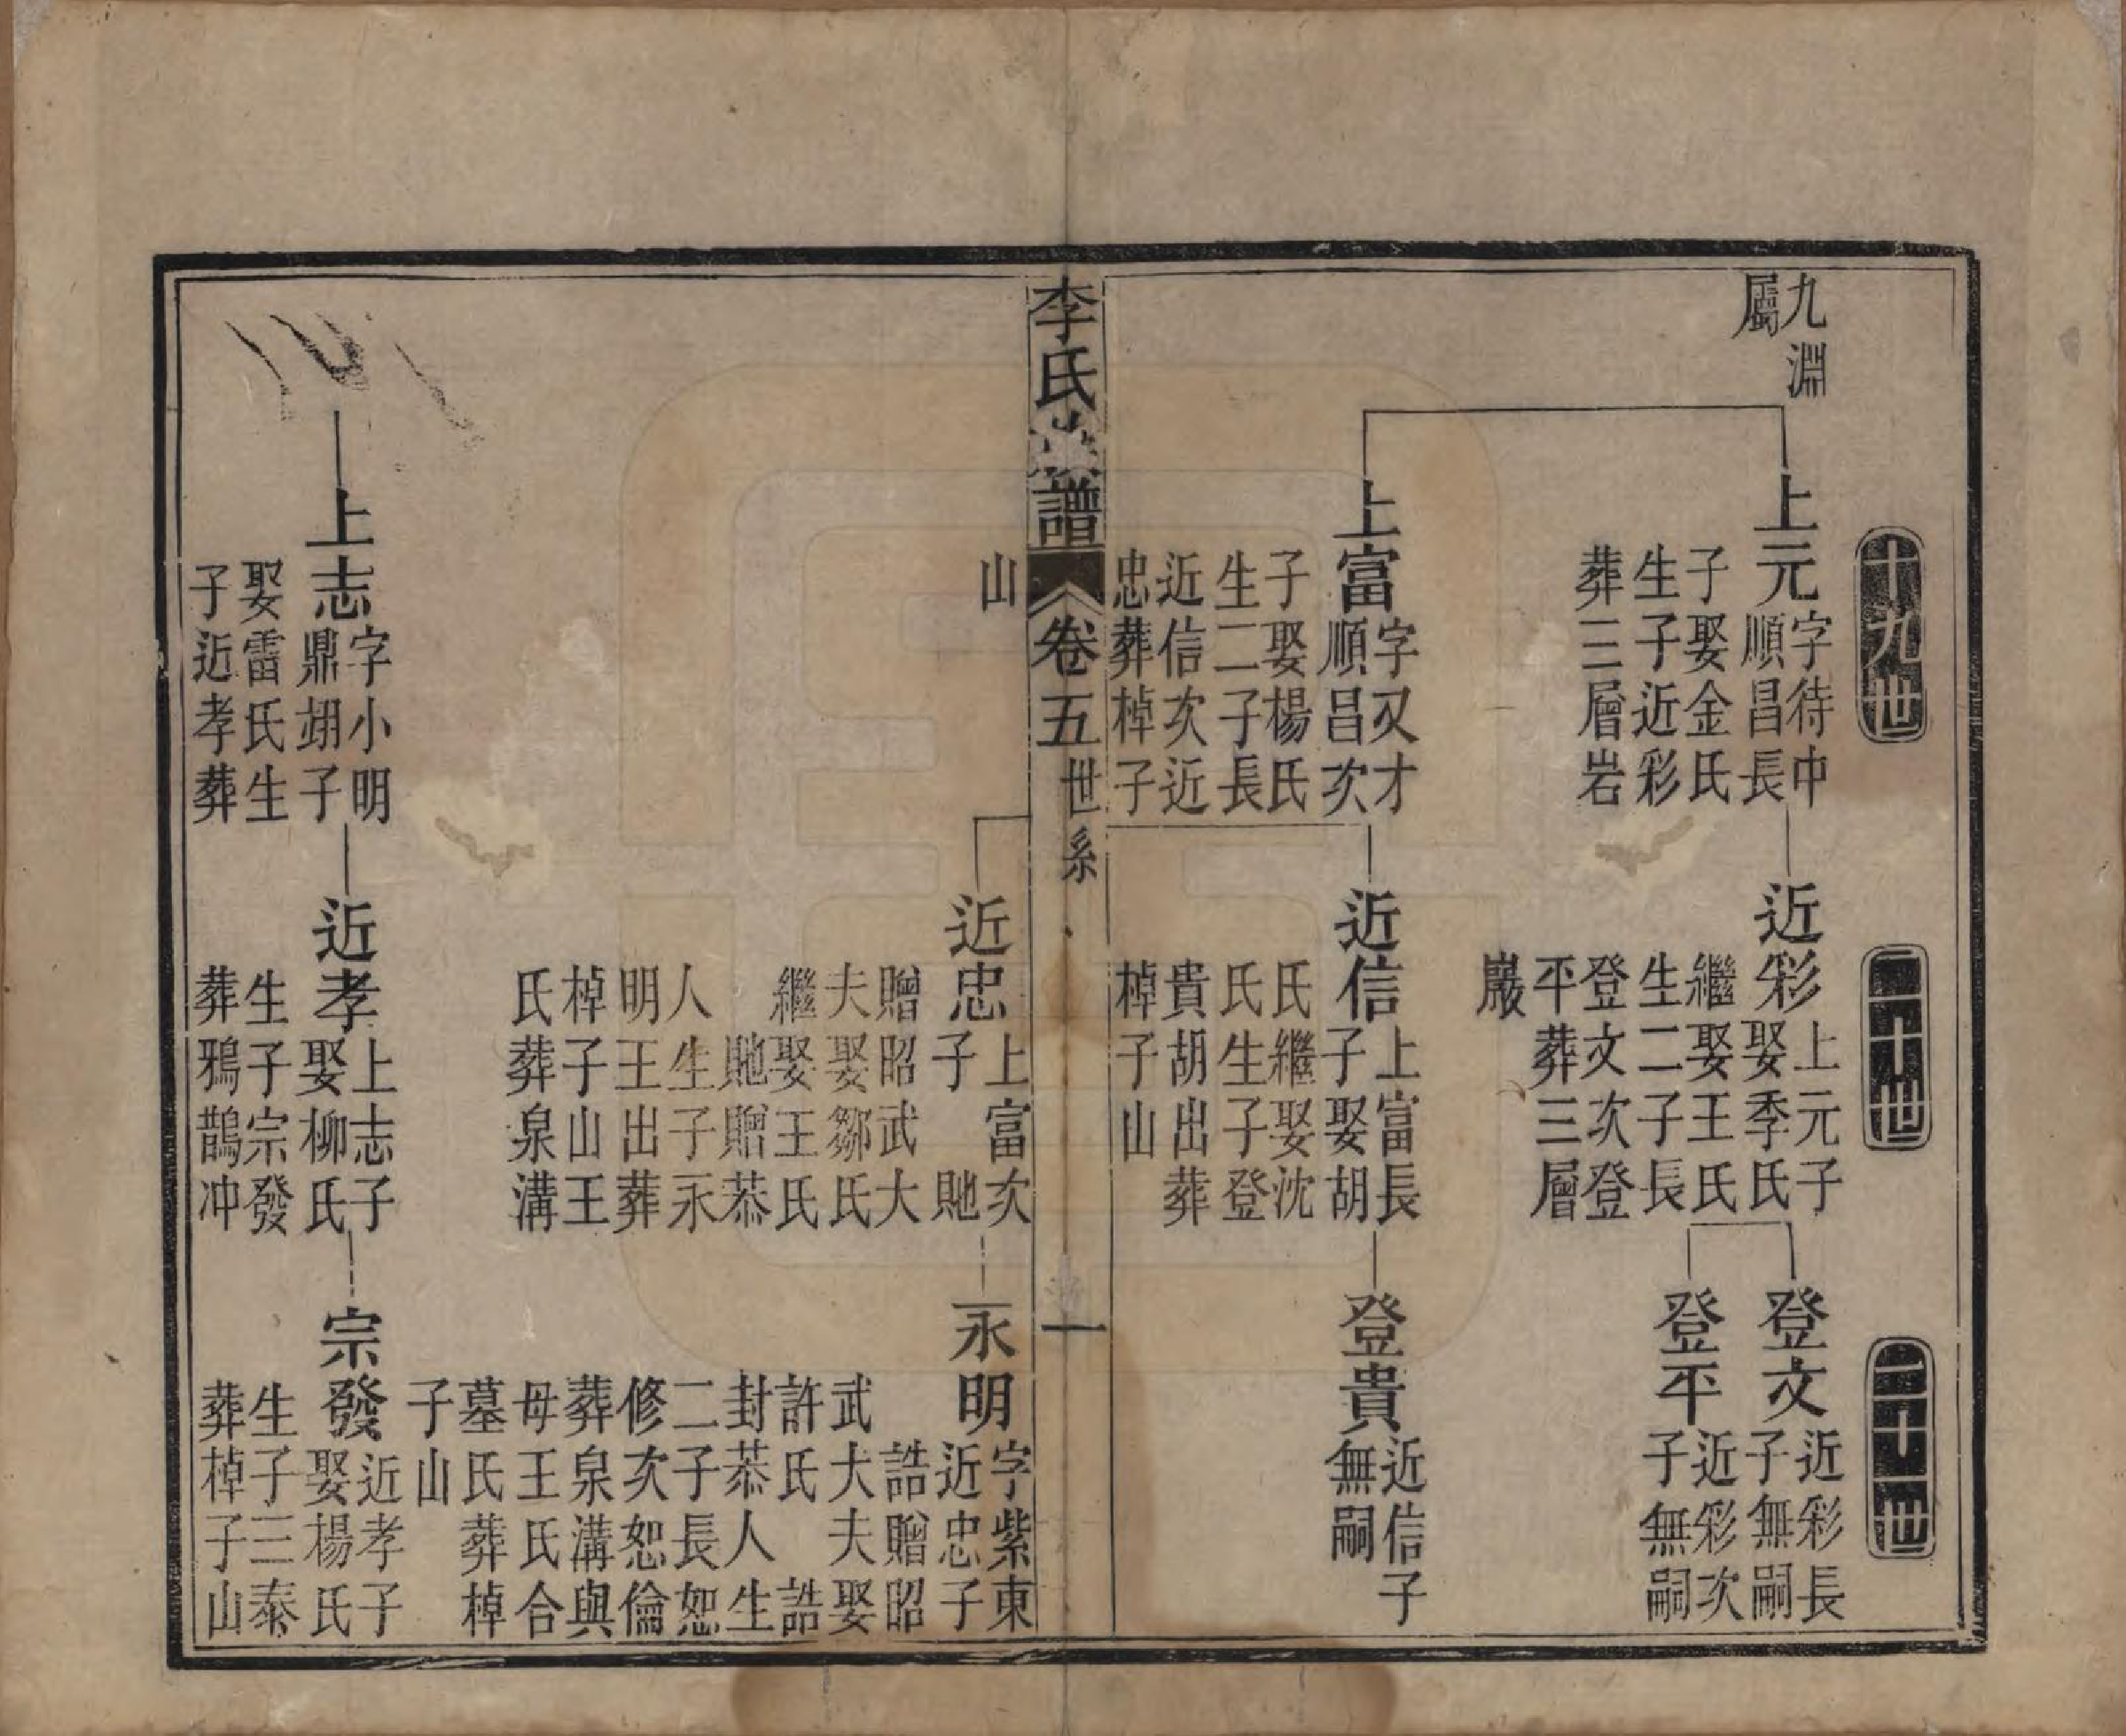 九淵
屬
十九世
上元
字待中
順昌長
子娶金氏
生子近彩
葬三層岩
上富
字又才
順昌次
子娶楊氏
生二子長
近信次近
忠葬棹子
山
二十世
近彩
上元子
娶季氏
繼娶王氏
生二子長
登文次登
平葬三層
巖
近信
上富長
子娶胡
氏繼娶沈
氏生子登
貴胡出葬
棹子山
二十一世
登文
近彩長
子無嗣
登平
近彩次
子無嗣
登貴
近信子
無嗣
李氏族譜
卷五
世系
一
近忠
上富次
子 馳
贈昭武大
夫娶鄒氏
繼娶王氏
馳贈恭
人生子永
明王出葬
棹子山王
氏葬泉溝
永明
字紫東
近忠子
誥贈昭
武大夫娶
許氏 誥
封恭人生
二子長恕
修次恕倫
葬泉溝與
母王氏合
墓氏葬棹
子山
上志
字小明
鼎翊子
娶雷氏生
子近孝葬
近孝
上志子
娶柳氏
生子宗發
葬鴉鵲冲
宗發
近孝子
娶楊氏
生子三泰
葬棹子山